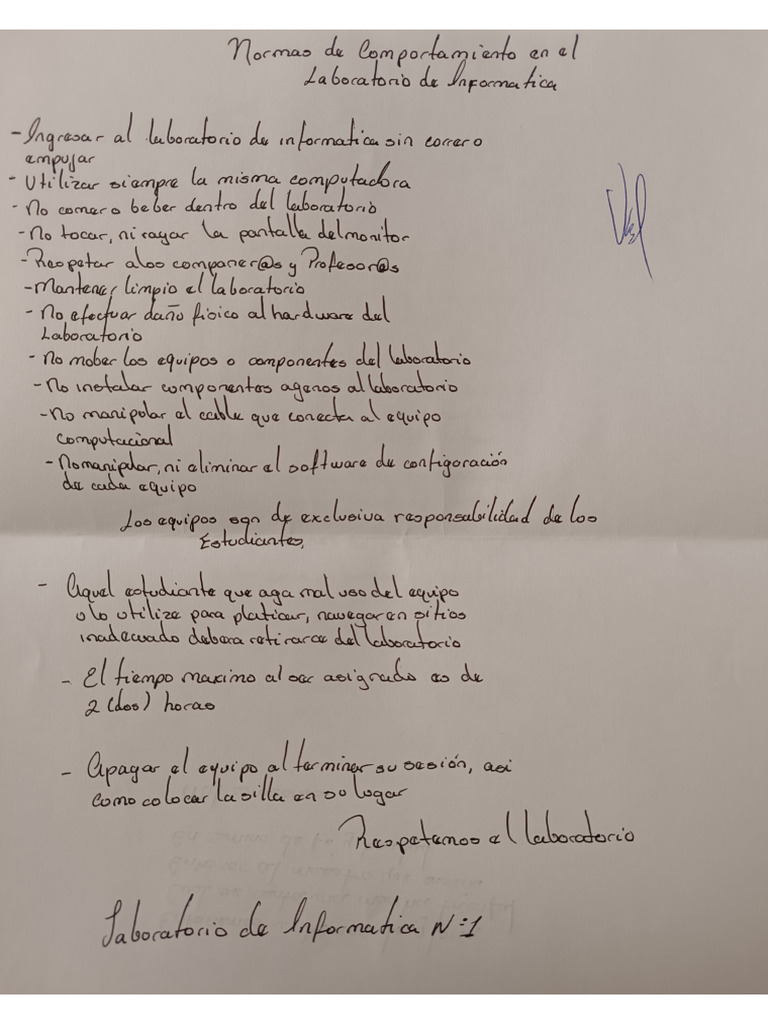 Normas de Comportamiento en el
Laboratorio de Informatica
- Ingresar al laboratorio de informatica sin correr o
empujar
- Utilizar siempre la misma computadora
- No comer o beber dentro del laboratorio
- No tocar, ni rayar la pantalla del monitor
- Respetar a los compañer@s y Profesor@s
- Mantener limpio el laboratorio
- No efectuar daño fisico al hardware del
Laboratorio
- No mober los equipos o componentes del laboratorio
- No instalar componentes agenos al laboratorio
- No manipolar el cable que conecta al equipo
computacional
- No manipolar, ni eliminar el software de configoración
de cada equipo
Los equipos son de exclusiva responsabilidad de los
Estudiantes,
- Aquel estudiante que aga mal uso del equipo
o lo utilize para platicar, navegar en sitios
inadecuado debera retirarce del laboratorio
- El tiempo maximo al ser asignado es de
2 (dos) horas
- Apagar el equipo al terminar su sesión, asi
como colocar la silla en su lugar
Respetemos el laboratorio
Laboratorio de Informatica N:1